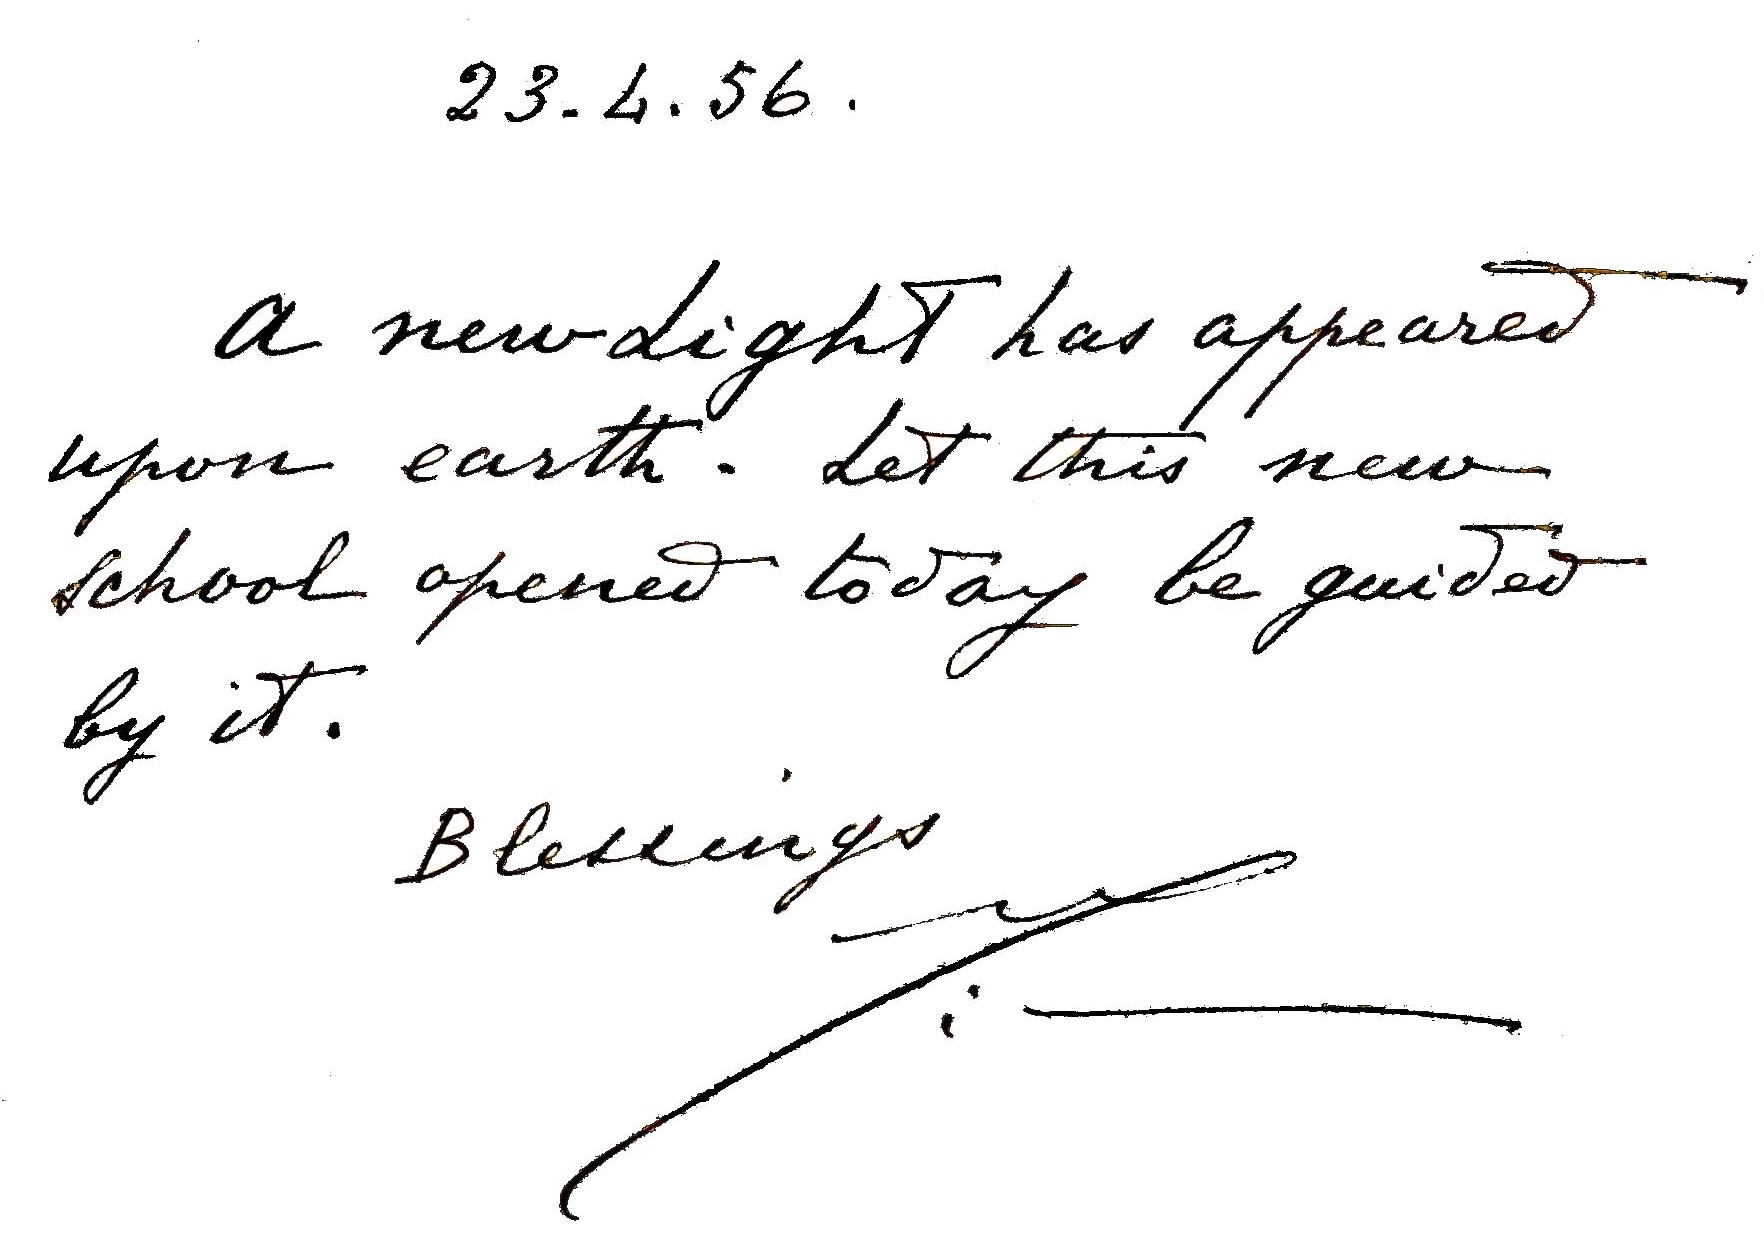 23.4.56.
A new Light has appeared
upon earth. Let this new
school opened today be guided
by it.
Blessings